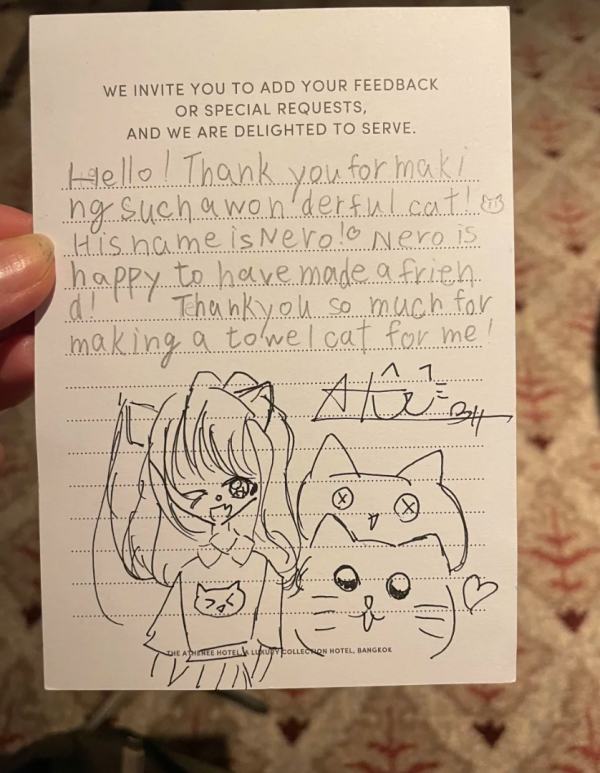 WE INVITE YOU TO ADD YOUR FEEDBACK
OR SPECIAL REQUESTS,
AND WE ARE DELIGHTED TO SERVE.
Hello! Thank you for maki
ng such a won derful cat!
His name is Nero! Nero is
happy to have made a frien
d! Thank you so much for
making a towel cat for me!
THE ATHENEE HOTEL, A LUXURY COLLECTION HOTEL, BANGKOK